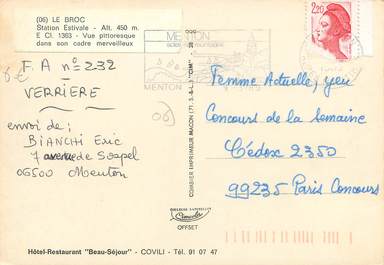 (06) LE BROC
Station Estivale - Alt. 450 m.
E CI. 1363 - Vue pittoresque
dans son cadre merveilleux
F.A n° 232
VERRIERE
envoi de :
BIANCHI Eric
7 avenue de Sospel
06500 Menton
MENTON
MENTON
2,20
06
COMBIER IMPRIMEUR MACON (71 S.-&-L.) "CIM"
Femme Actuelle, jeu
Concours de la Semaine
Cédex 2350
99235 Paris Concours
OFFSET
Hôtel-Restaurant "Beau-Séjour" - COVILI - Tél. 91 07 47